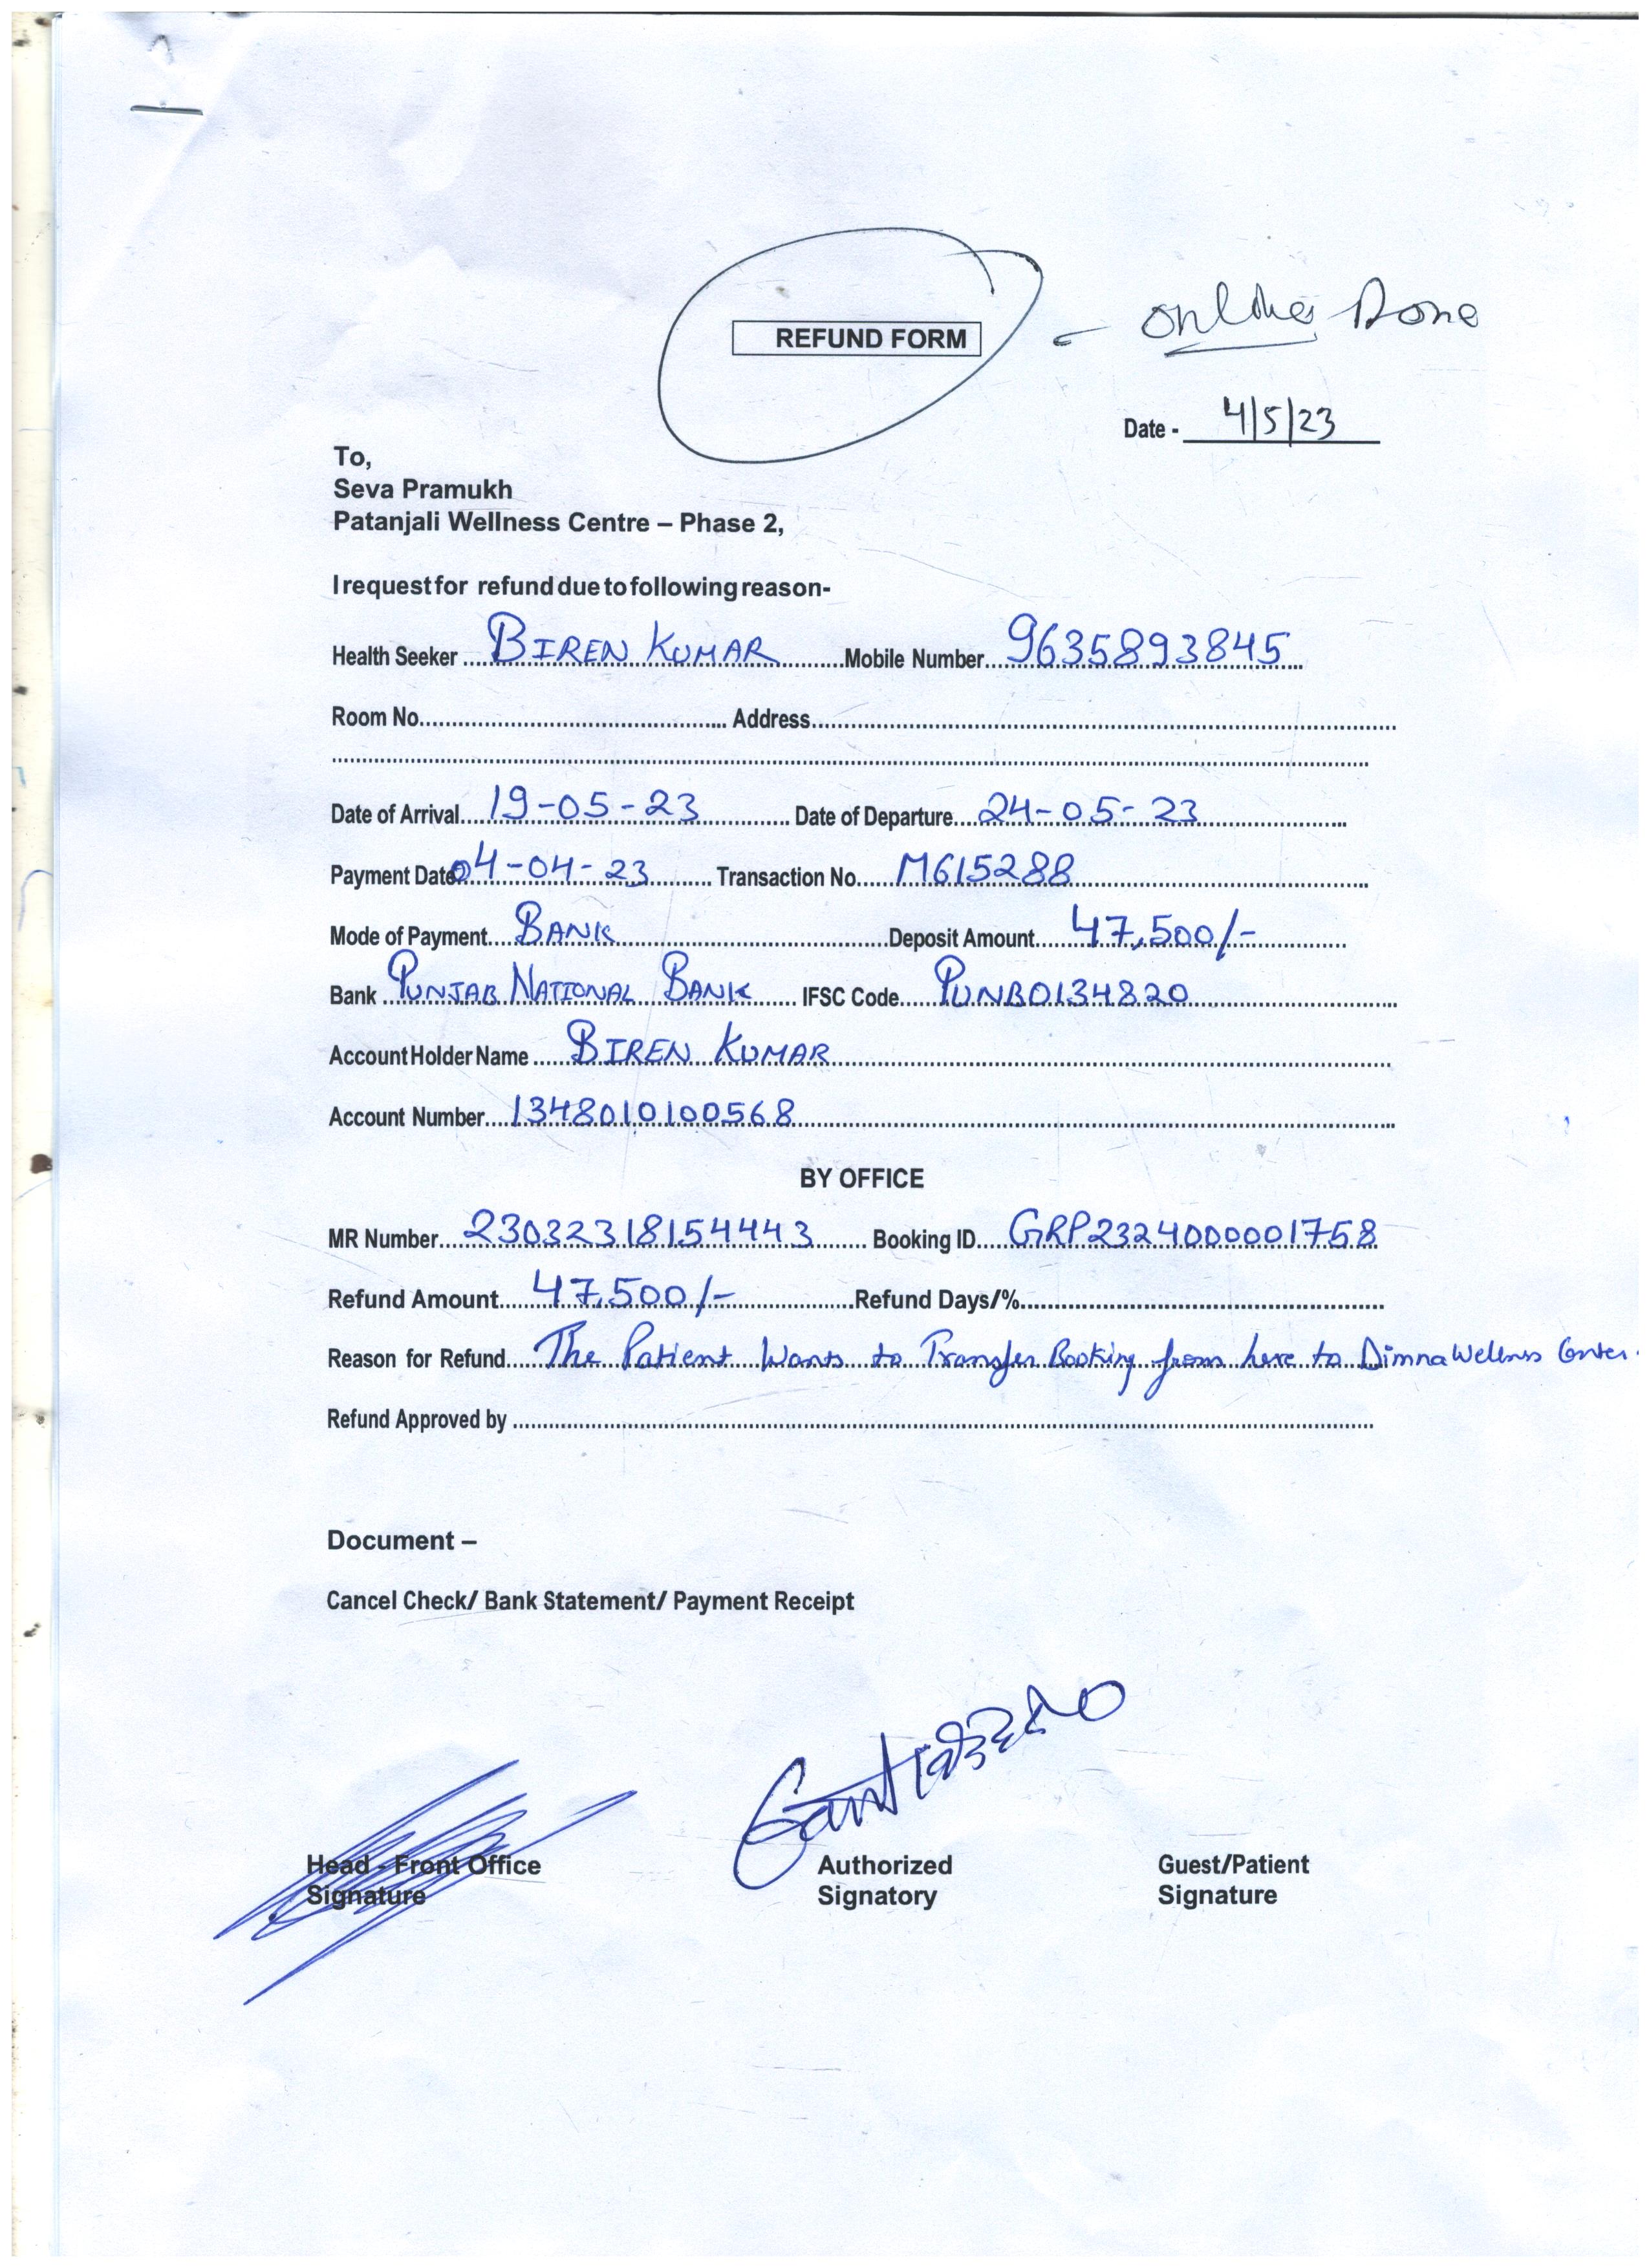 REFUND FORM - Online Done
Date - 4/5/23
To,
Seva Pramukh
Patanjali Wellness Centre – Phase 2,
I request for refund due to following reason-
Health Seeker ..... BIREN KUMAR ..... Mobile Number... 9635893845
Room No........ Address........
Date of Arrival.... 19-05-23 ..... Date of Departure.... 24-05-23
Payment Date 04-04-23 ..... Transaction No..... M615288
Mode of Payment.... BANK ..... Deposit Amount..... 47,500/-
Bank ... PUNJAB NATIONAL BANK ..... IFSC Code..... PUNB0134820
Account Holder Name ..... BIREN KUMAR
Account Number..... 1348010100568
BY OFFICE
MR Number.... 23032318154443 ..... Booking ID..... GRP2324000001758
Refund Amount..... 47,500/- ..... Refund Days/%.....
Reason for Refund..... The Patient Wants to Transfer Booking from here to Dimna Wellness Center.
Refund Approved by .....
Document –
Cancel Check/ Bank Statement/ Payment Receipt
Head - Front Office Authorized Guest/Patient
Signature Signatory Signature